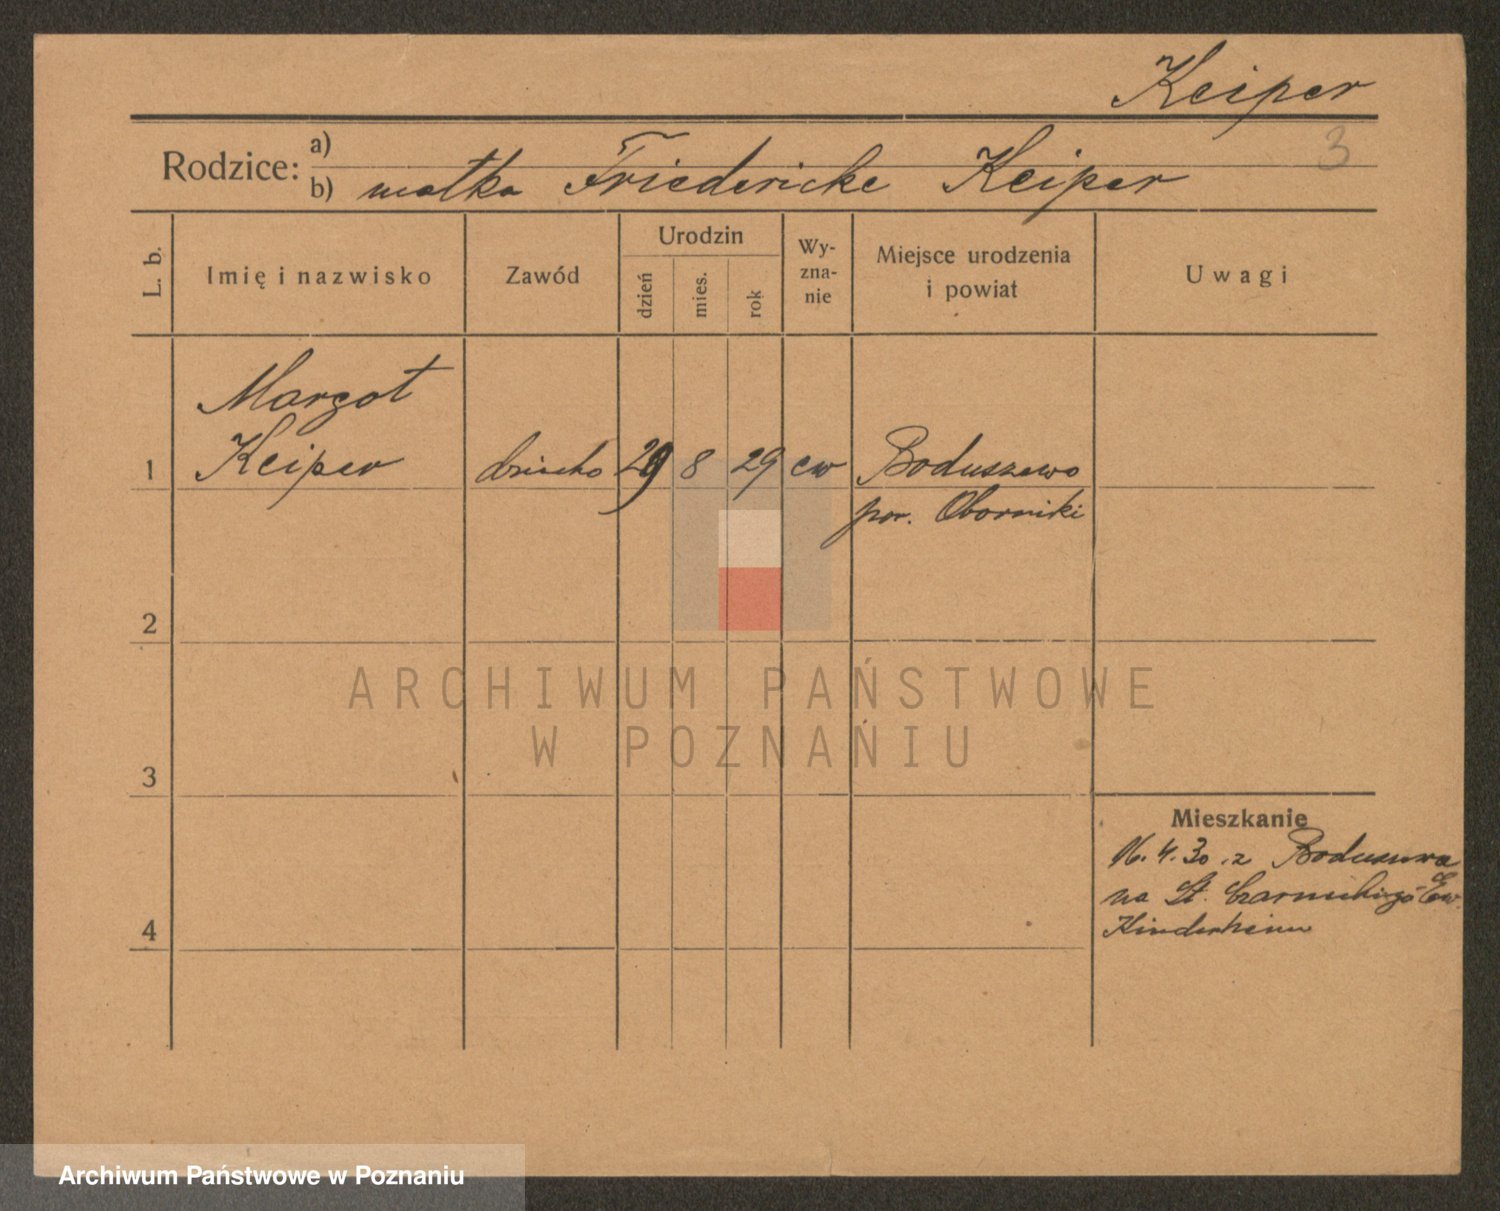 Keiper
3
Rodzice:
a)
b) matka Friedericke Keiper
L. b.
Imię i nazwisko
Zawód
Urodzin
dzień
mies.
rok
Wy-
zna-
nie
Miejsce urodzenia
i powiat
Uwagi
Margot
1 Keiper dziecko 29 8 29 ew Boduszewo
pow. Oborniki
2
ARCHIWUM PAŃSTWOWE
W POZNANIU
3
Mieszkanie
16.4.30. z Boduszewa
na St. Czarneckiego Ew.
Kinderheim
4
Archiwum Państwowe w Poznaniu